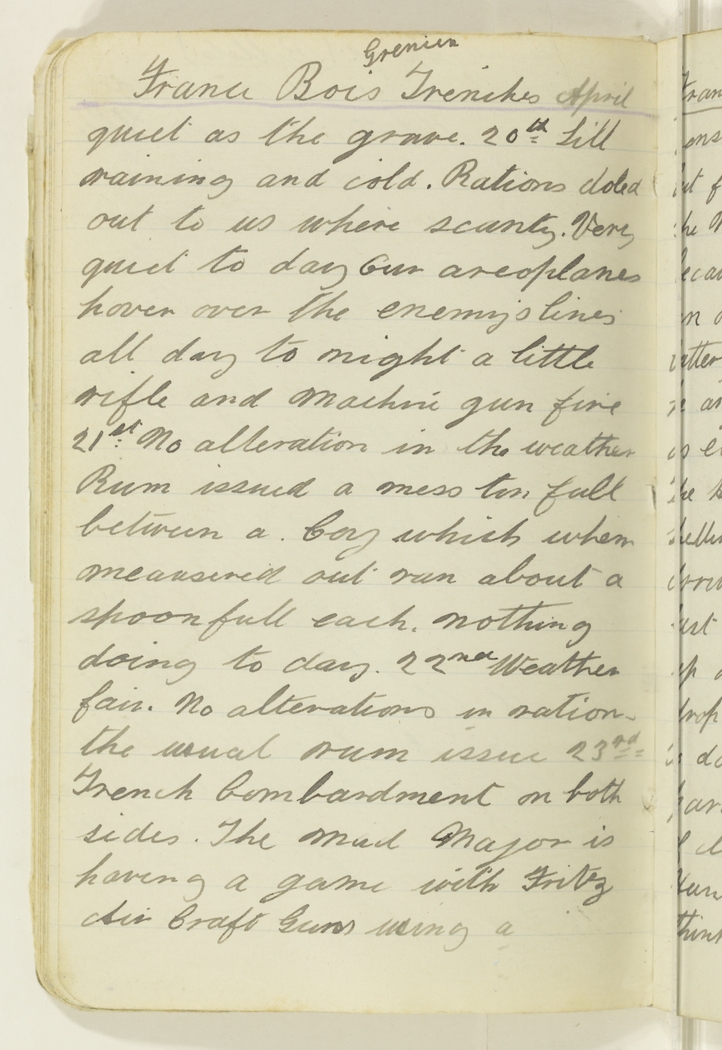 Grenier
France Bois Trenches April
quiet as the grave. 20th Sill
raining and cold. Rations doled
out to us where scanty. Very
quiet to day Our areoplanes
hover over the enemys lines
all day to night a little
rifle and machine gun fire
21st No alteration in the weather
Rum issued a mess tin full
between a. Coy which when
meausered out ran about a
spoonfull each. nothing
doing to day. 22nd Weather
fair. No alterations in ration-
the usual rum issue 23rd
Trench Bombardment on both
sides. The mad Major is
having a game with Fritz
Air Craft Guns using a